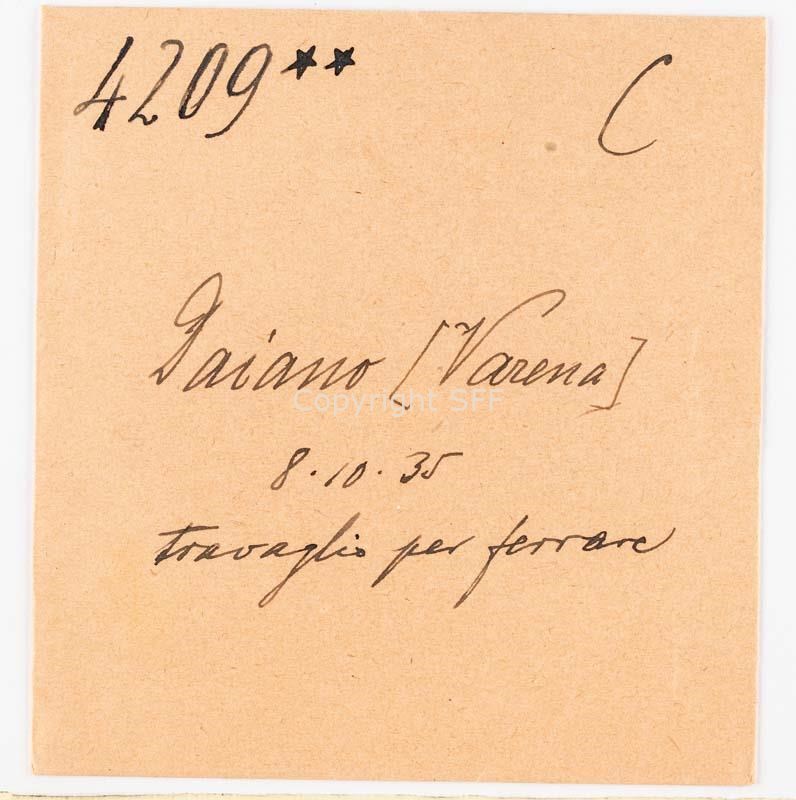 4209** C
Daiano [Varena]
Copyright SFF
8.10.35
travaglio per ferrare